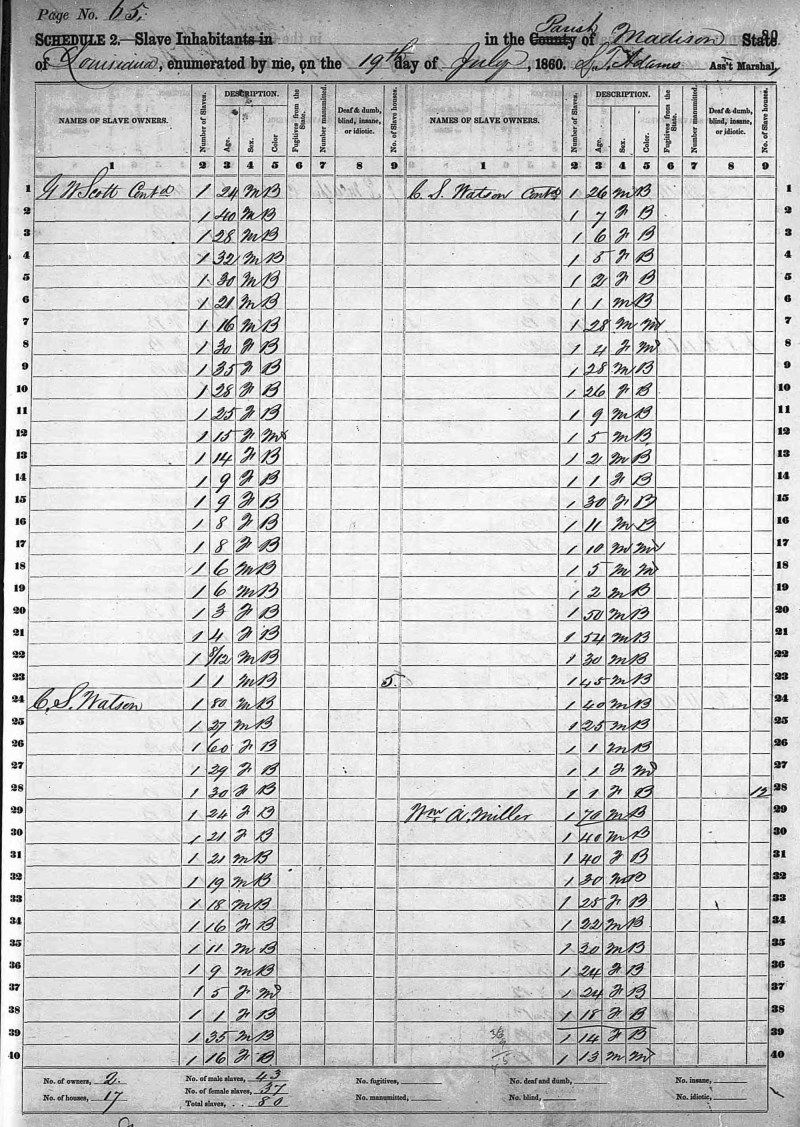 Page No. 65.
80
SCHEDULE 2.—Slave Inhabitants in in the County Parish of Madison State
of Louisiana, enumerated by me, on the 19th day of July, 1860. Adams Ass't Marshal,
NAMES OF SLAVE OWNERS. Number of Slaves. DESCRIPTION. Age. Sex. Color. Fugitives from the State. Number manumitted. Deaf & dumb, blind, insane, or idiotic. No. of Slave houses. NAMES OF SLAVE OWNERS. Number of Slaves. DESCRIPTION. Age. Sex. Color. Fugitives from the State. Number manumitted. Deaf & dumb, blind, insane, or idiotic. No. of Slave houses.
1 2 3 4 5 6 7 8 9 1 2 3 4 5 6 7 8 9
1 G W Scott Contd 1 24 M B C. S. Watson Contd 1 26 M B 1
2 1 40 M B 1 7 F B 2
3 1 28 M B 1 6 F B 3
4 1 32 M B 1 5 F B 4
5 1 30 M B 1 2 F B 5
6 1 21 M B 1 1 M B 6
7 1 16 M B 1 28 M M 7
8 1 30 F B 1 4 F M 8
9 1 35 F B 1 28 M B 9
10 1 28 F B 1 26 F B 10
11 1 25 F B 1 9 M B 11
12 1 15 F M 1 5 M B 12
13 1 14 F B 1 2 M B 13
14 1 9 F B 1 1 F B 14
15 1 9 F B 1 30 F B 15
16 1 8 F B 1 11 M B 16
17 1 8 F B 1 10 M M 17
18 1 6 M B 1 5 M M 18
19 1 6 M B 1 2 M B 19
20 1 3 F B 1 50 M B 20
21 1 4 F B 1 54 M B 21
22 1 8/12 M B 1 30 M B 22
23 1 1 M B 5 1 45 M B 23
24 C. S. Watson 1 80 M B 1 40 M B 24
25 1 27 M B 1 25 M B 25
26 1 60 F B 1 1 M B 26
27 1 29 F B 1 1 F M 27
28 1 30 F B 1 1 F B 12 28
29 1 24 F B Wm A. Miller 1 70 M B 29
30 1 21 F B 1 40 M B 30
31 1 21 M B 1 40 F B 31
32 1 19 M B 1 30 M B 32
33 1 18 M B 1 25 F B 33
34 1 16 F B 1 22 M B 34
35 1 11 M B 1 30 M B 35
36 1 9 M B 1 24 F B 36
37 1 5 F M 1 24 F B 37
38 1 1 F B 1 18 F B 38
39 1 35 M B 1 14 F B 39
40 1 16 F B 1 13 M M 40
No. of owners, 2. No. of male slaves, 43 No. fugitives, No. of deaf and dumb, No. insane,
No. of houses, 17 No. of female slaves, 37 No. manumitted, No. blind, No. idiotic,
Total slaves, . . 80